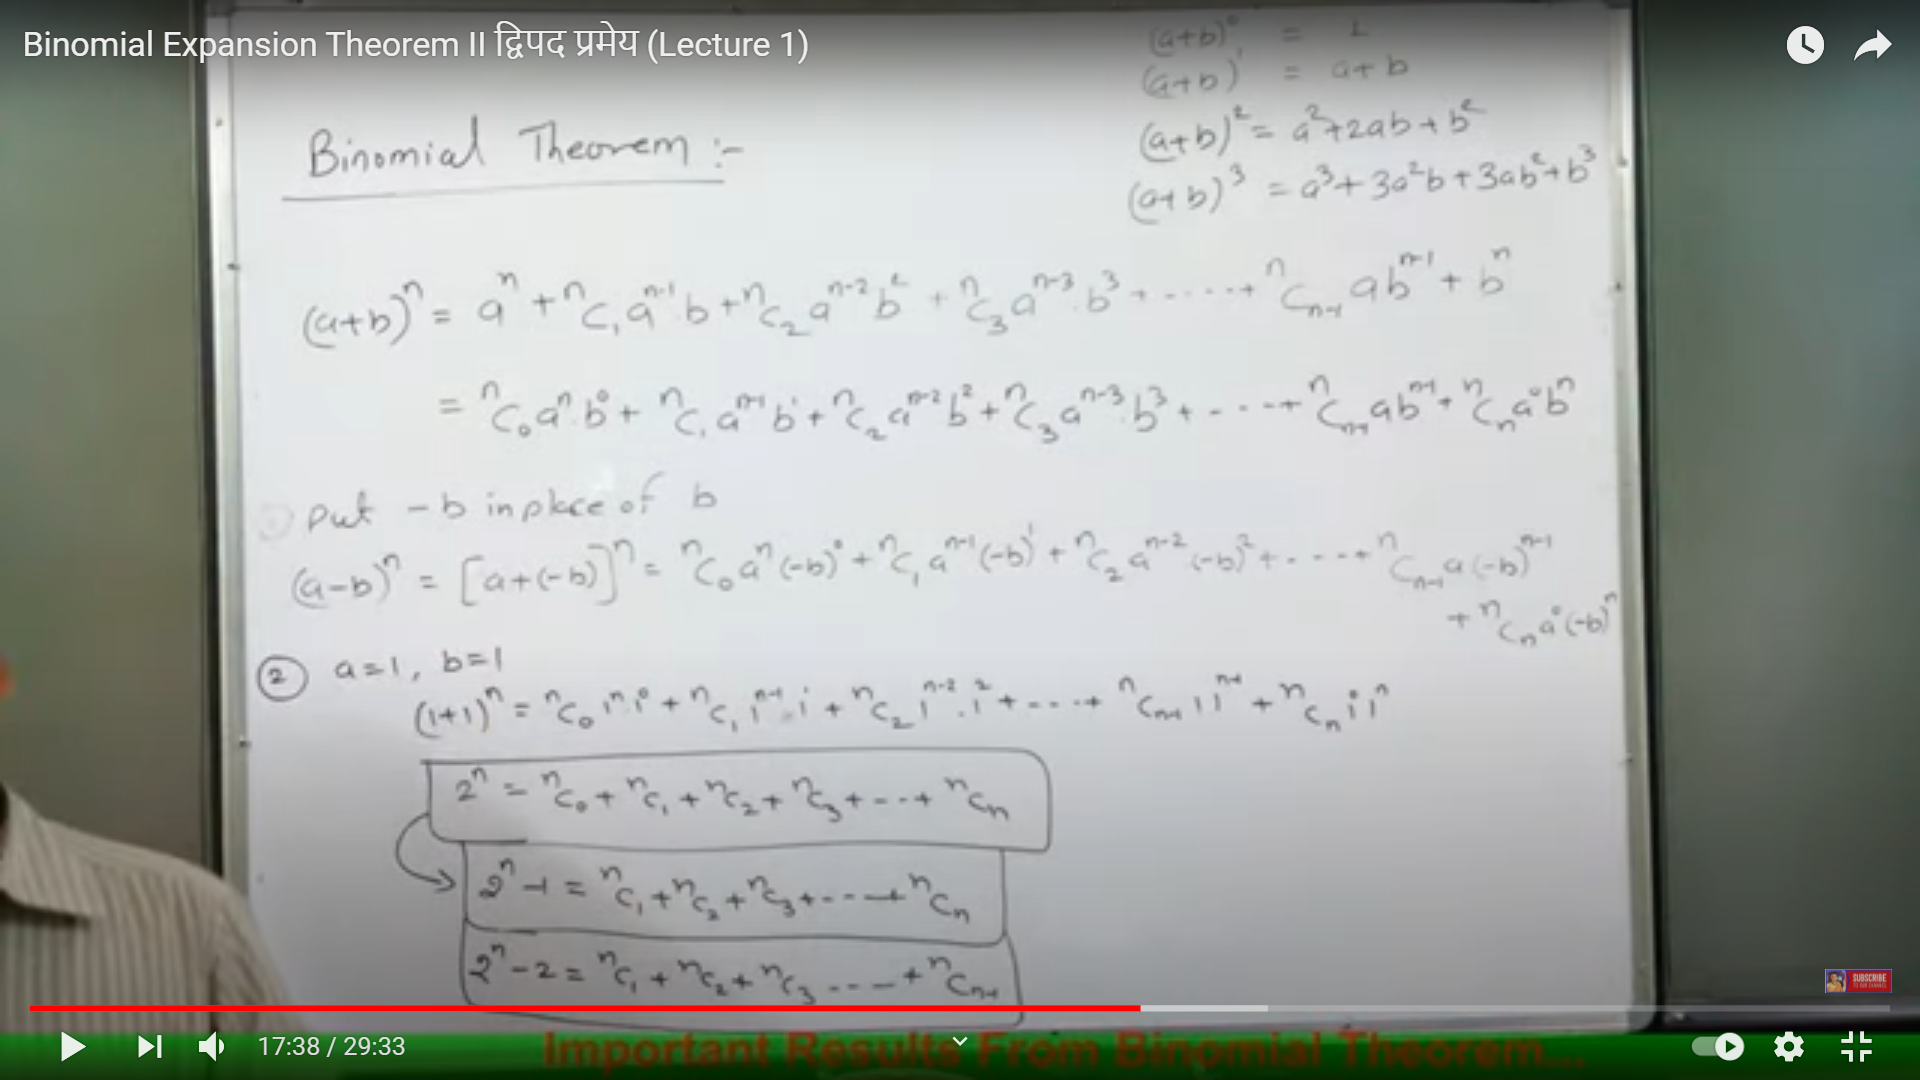 Binomial Expansion Theorem II द्विपद प्रमेय (Lecture 1)
(a+b)⁰ = 1
(a+b)¹ = a+b
(a+b)² = a²+2ab+b²
(a+b)³ = a³+3a²b+3ab²+b³
Binomial Theorem :-
(a+b)ⁿ = aⁿ + ⁿC₁aⁿ⁻¹.b + ⁿC₂aⁿ⁻²b² + ⁿC₃aⁿ⁻³.b³ + ----- + ⁿCₙ₋₁abⁿ⁻¹ + bⁿ
= ⁿC₀aⁿ.b⁰ + ⁿC₁aⁿ⁻¹b¹ + ⁿC₂aⁿ⁻²b² + ⁿC₃aⁿ⁻³.b³ + ---- + ⁿCₙ₋₁abⁿ⁻¹ + ⁿCₙa⁰bⁿ
put -b in place of b
(a-b)ⁿ = [a+(-b)]ⁿ = ⁿC₀aⁿ(-b)⁰ + ⁿC₁aⁿ⁻¹(-b)¹ + ⁿC₂aⁿ⁻²(-b)² + ---- + ⁿCₙ₋₁a(-b)ⁿ⁻¹
+ ⁿCₙa⁰(-b)ⁿ
② a=1, b=1
(1+1)ⁿ = ⁿC₀1ⁿ.1⁰ + ⁿC₁1ⁿ⁻¹.1¹ + ⁿC₂1ⁿ⁻².1² + ---- + ⁿCₙ₋₁1 1ⁿ⁻¹ + ⁿCₙ1⁰1ⁿ
2ⁿ = ⁿC₀ + ⁿC₁ + ⁿC₂ + ⁿC₃ + --- + ⁿCₙ
2ⁿ-1 = ⁿC₁ + ⁿC₂ + ⁿC₃ + ---- + ⁿCₙ
2ⁿ-2 = ⁿC₁ + ⁿC₂ + ⁿC₃ ---- + ⁿCₙ₋₁
SUBSCRIBE
TO OUR CHANNEL
17:38 / 29:33
Important Results From Binomial Theorem...